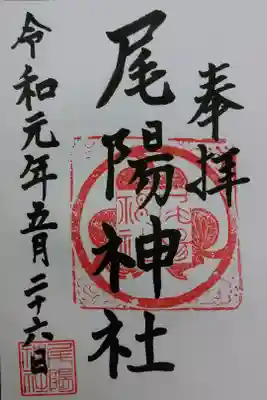 奉拝
尾陽神社
令和元年五月二十六日
尾陽
神社